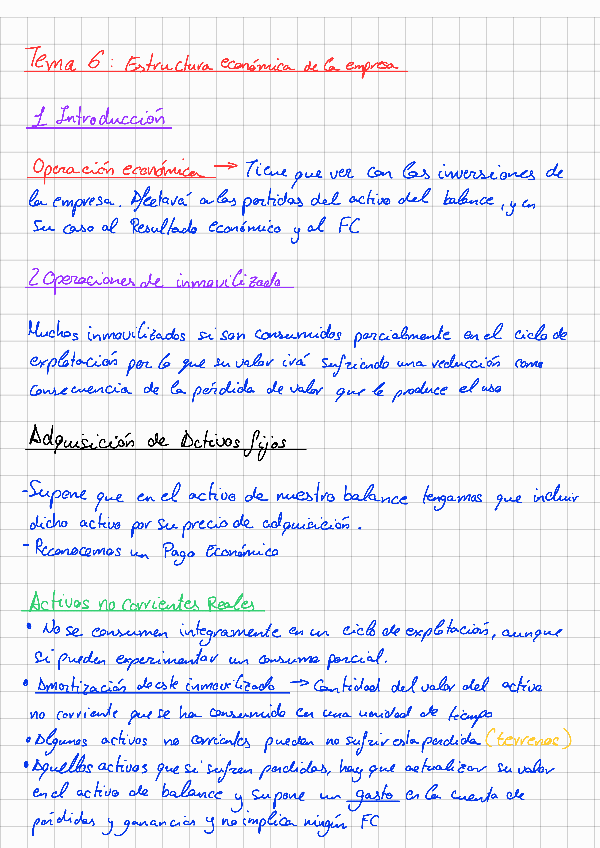 Tema 6: Estructura económica de la empresa
1 Introducción
Operación económica → Tiene que ver con las inversiones de
la empresa. Afectará a las partidas del activo del balance, y en
su caso al Resultado económico y al FC
2 Operaciones de inmovilizado
Muchos inmovilizados si son consumidos parcialmente en el ciclo de
explotación por lo que su valor irá sufriendo una reducción como
consecuencia de la pérdida de valor que le produce el uso
Adquisición de Activos fijos
- Supone que en el activo de nuestro balance tengamos que incluir
dicho activo por su precio de adquisición.
- Reconocemos un Pago Económico
Activos no Corrientes Reales
• No se consumen integramente en un ciclo de explotación, aunque
si pueden experimentar un consumo parcial.
• Amortización de este inmovilizado → Cantidad del valor del activo
no corriente que se ha consumido en una unidad de tiempo
• Algunos activos no corrientes pueden no sufrir esta perdida (terrenos)
• Aquellos activos que si sufren perdidas, hay que actualizar su valor
en el activo de balance y supone un gasto en la cuenta de
pérdidas y ganancias y no implica ningún FC